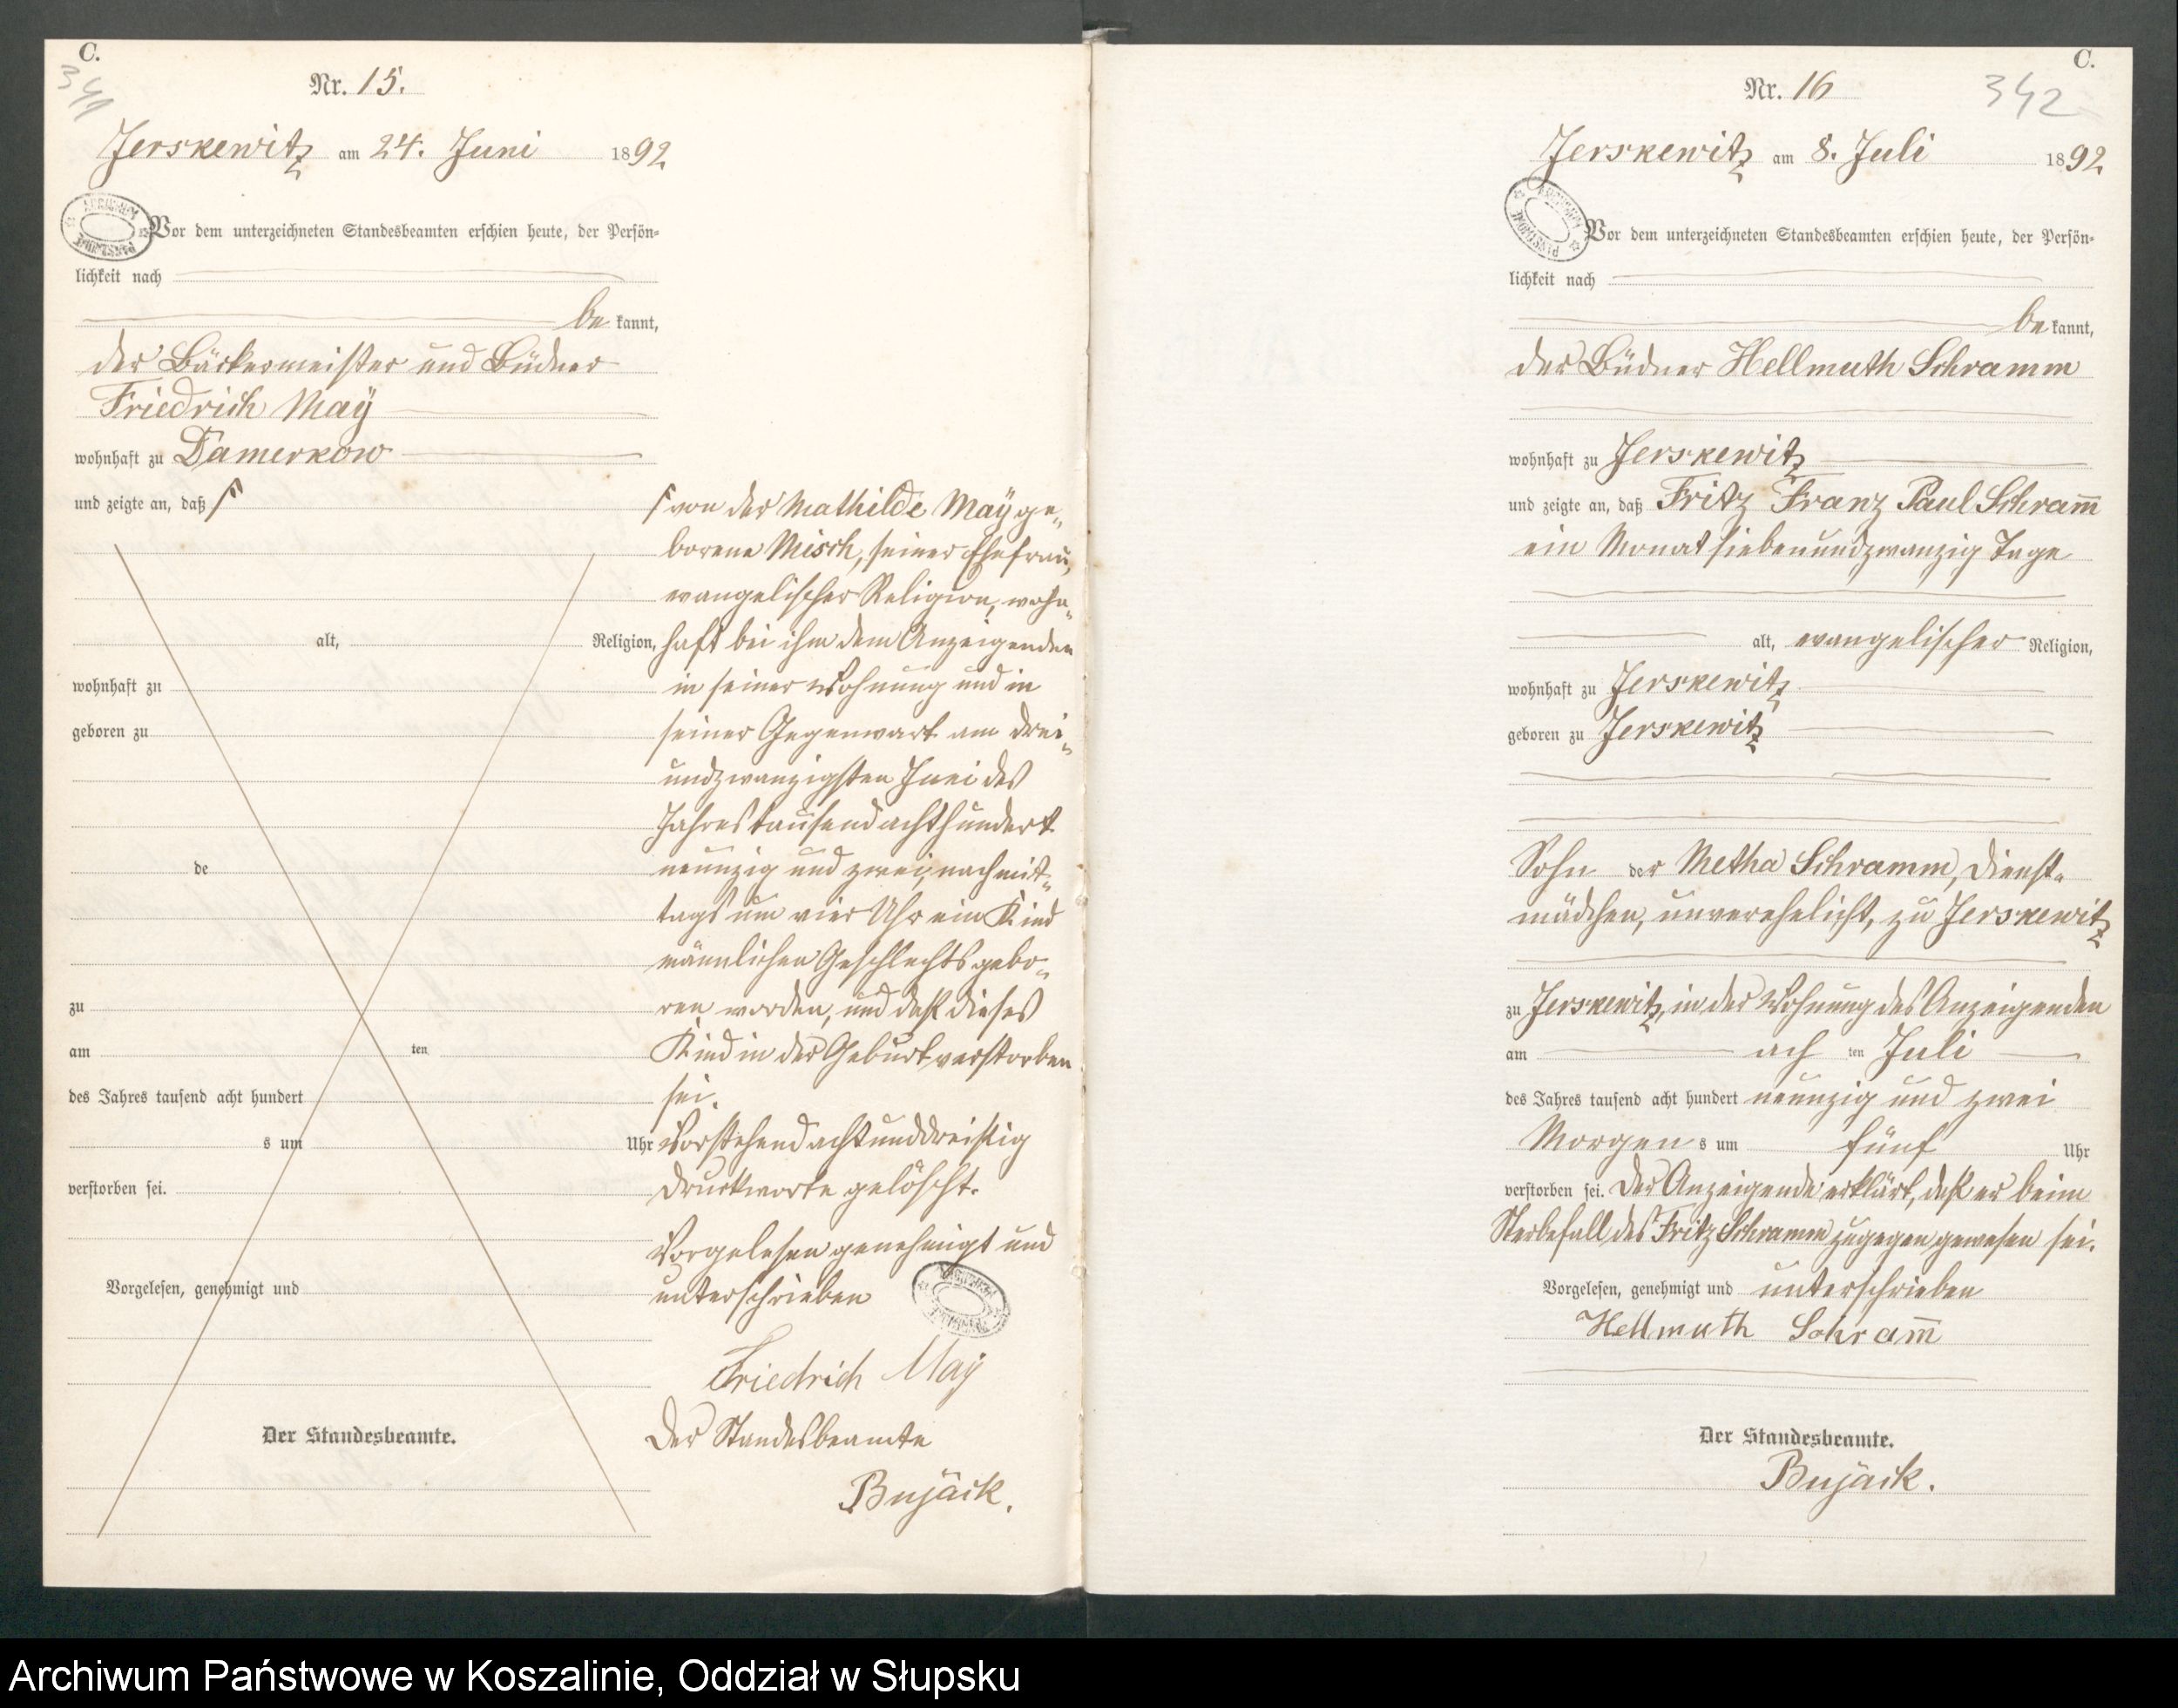 C.
341
Nr. 15.
Jerskewitz am 24. Juni 1892
Vor dem unterzeichneten Standesbeamten erschien heute, der Persön-
lichkeit nach
be kannt,
der Bäckermeister und Büdner
Friedrich Maÿ
wohnhaft zu Damerkow
und zeigte an, daß
von der Mathilde Maÿ ge-
borene Misch, seiner Ehefrau,
evangelischer Religion, wohn-
alt, Religion, haft bei ihm dem Anzeigenden
wohnhaft zu in seiner Wohnung und in
geboren zu seiner Gegenwart am drei-
undzwanzigsten Juni des
Jahres tausend achthundert
de neunzig und zwei, nachmit-
tags um vier Uhr ein Kind
männlichen Geschlechts gebo-
zu ren worden, und daß dieses
am ten Kind in der Geburt verstorben
des Jahres tausend acht hundert sei.
s um Uhr Vorstehend achtunddreißig
verstorben sei. Druckworte gelöscht.
Vorgelesen genehmigt und
Vorgelesen, genehmigt und unterschrieben
Friedrich Maÿ
Der Standesbeamte. Der Standesbeamte
Bujäck.
C.
342
Nr. 16
Jerskewitz am 8. Juli 1892
Vor dem unterzeichneten Standesbeamten erschien heute, der Persön-
lichkeit nach
be kannt,
der Büdner Hellmuth Schramm
wohnhaft zu Jerskewitz
und zeigte an, daß Fritz Franz Paul Schram̅
ein Monat siebenundzwanzig Tage
alt, evangelischer Religion,
wohnhaft zu Jerskewitz
geboren zu Jerskewitz
Sohn der Metha Schramm, Dienst-
mädchen, unverehelicht, zu Jerskewitz
zu Jerskewitz, in der Wohnung des Anzeigenden
am ach ten Juli
des Jahres tausend acht hundert neunzig und zwei
Morgen s um fünf Uhr
verstorben sei. Der Anzeigende erklärt, daß er beim
Sterbefall des Fritz Schramm zugegen gewesen sei.
Vorgelesen, genehmigt und unterschrieben
Hellmuth Schram̅
Der Standesbeamte.
Bujäck.
Archiwum Państwowe w Koszalinie, Oddział w Słupsku